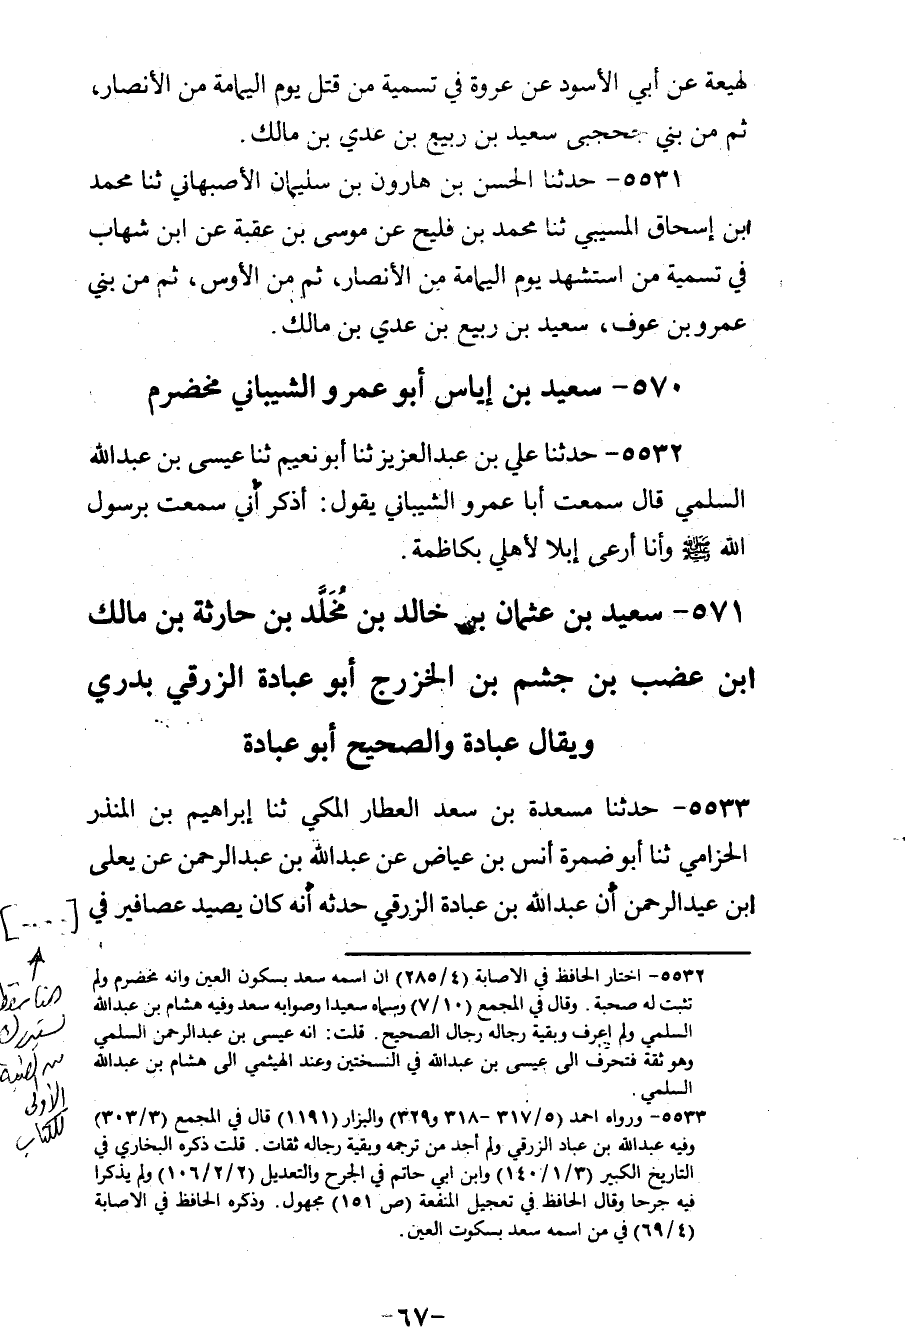 لهيعة عن أبي الأسود عن عروة في تسمية من قتل يوم اليمامة من الأنصار،
ثم من بني جحجبى سعيد بن ربيع بن عدي بن مالك.
٥٥٣١- حدثنا الحسن بن هارون بن سليمان الأصبهاني ثنا محمد
ابن إسحاق المسيبي ثنا محمد بن فليح عن موسى بن عقبة عن ابن شهاب
في تسمية من استشهد يوم اليمامة من الأنصار، ثم من الأوس، ثم من بني
عمرو بن عوف، سعيد بن ربيع بن عدي بن مالك.
٥٧٠- سعيد بن إياس أبو عمرو الشيباني مخضرم
٥٥٣٢- حدثنا علي بن عبدالعزيز ثنا أبو نعيم ثنا عيسى بن عبدالله
السلمي قال سمعت أبا عمرو الشيباني يقول: أذكر أني سمعت برسول
الله ﷺ وأنا أرعى إبلا لأهلي بكاظمة.
٥٧١- سعيد بن عثمان بن خالد بن مُخَلَّد بن حارثة بن مالك
ابن عضب بن جشم بن الخزرج أبو عبادة الزرقي بدري
ويقال عبادة والصحيح أبو عبادة
٥٥٣٣- حدثنا مسعدة بن سعد العطار المكي ثنا إبراهيم بن المنذر
الحزامي ثنا أبو ضمرة أنس بن عياض عن عبدالله بن عبدالرحمن عن يعلى
ابن عبدالرحمن أن عبدالله بن عبادة الزرقي حدثه أنه كان يصيد عصافير في
[....]
هنا سقط
يستدرك
من الطبعة
الأولى
للكتاب
٥٥٣٢- اختار الحافظ في الاصابة (٢٨٥/٤) ان اسمه سعد بسكون العين وانه مخضرم ولم
تثبت له صحبة. وقال في المجمع (٧/١٠) وسماه سعيدا وصوابه سعد وفيه هشام بن عبدالله
السلمي ولم إعرف وبقية رجاله رجال الصحيح. قلت: انه عيسى بن عبدالرحمن السلمي
وهو ثقة فتحرف الى عيسى بن عبدالله في النسختين وعند الهيثمي الى هشام بن عبدالله
السلمي.
٥٥٣٣- ورواه احمد (٣١٧/٥ -٣١٨ و٣٢٩) والبزار (١١٩١) قال في المجمع (٣٠٣/٣)
وفيه عبدالله بن عباد الزرقي ولم أجد من ترجمه وبقية رجاله ثقات. قلت ذكره البخاري في
التاريخ الكبير (١٤٠/١/٣) وابن ابي حاتم في الجرح والتعديل (١٠٦/٢/٢) ولم يذكرا
فيه جرحا وقال الحافظ في تعجيل المنفعة (ص ١٥١) مجهول. وذكره الحافظ في الاصابة
(٦٩/٤) في من اسمه سعد بسكوت العين.
-٦٧-